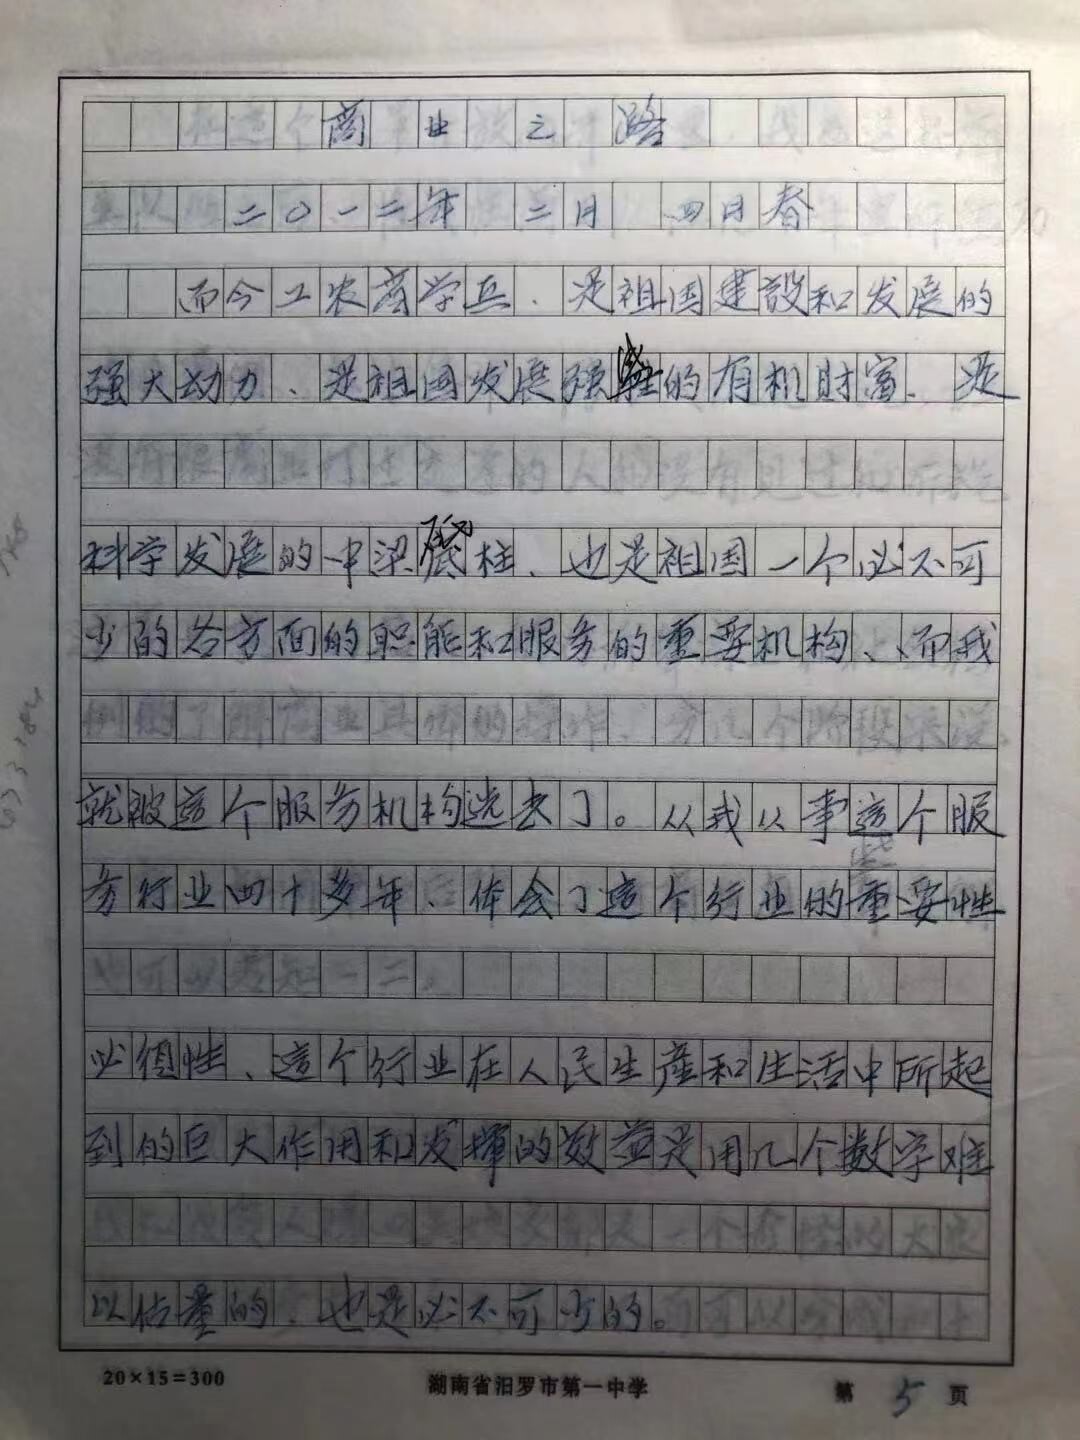 商业之路
二〇一二年 二月 四日春
而今工农商学兵、是祖国建设和发展的
强大动力、是祖国发展强的有机财富、是
科学发展的中梁砥柱、也是祖国一个必不可
少的各方面的职能和服务的重要机构、而我
就被这个服务机构选去了。从我从事这个服
务行业四十多年、体会了这个行业的重要性
必须性、这个行业在人民生产和生活中所起
到的巨大作用和发挥的效益是用几个数字难
以估量的、也是必不可少的。
20×15=300
湖南省汨罗市第一中学
第 5 页